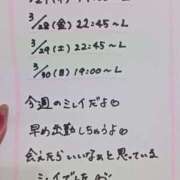 3/28(金) 22:45〜L
3/29(土) 22:45〜L
3/30(日) 19:00〜L
今週のミレイだよ♡
早め出勤しちゃうよ♡
会えたらいいなぁと思っている
ミレイでした